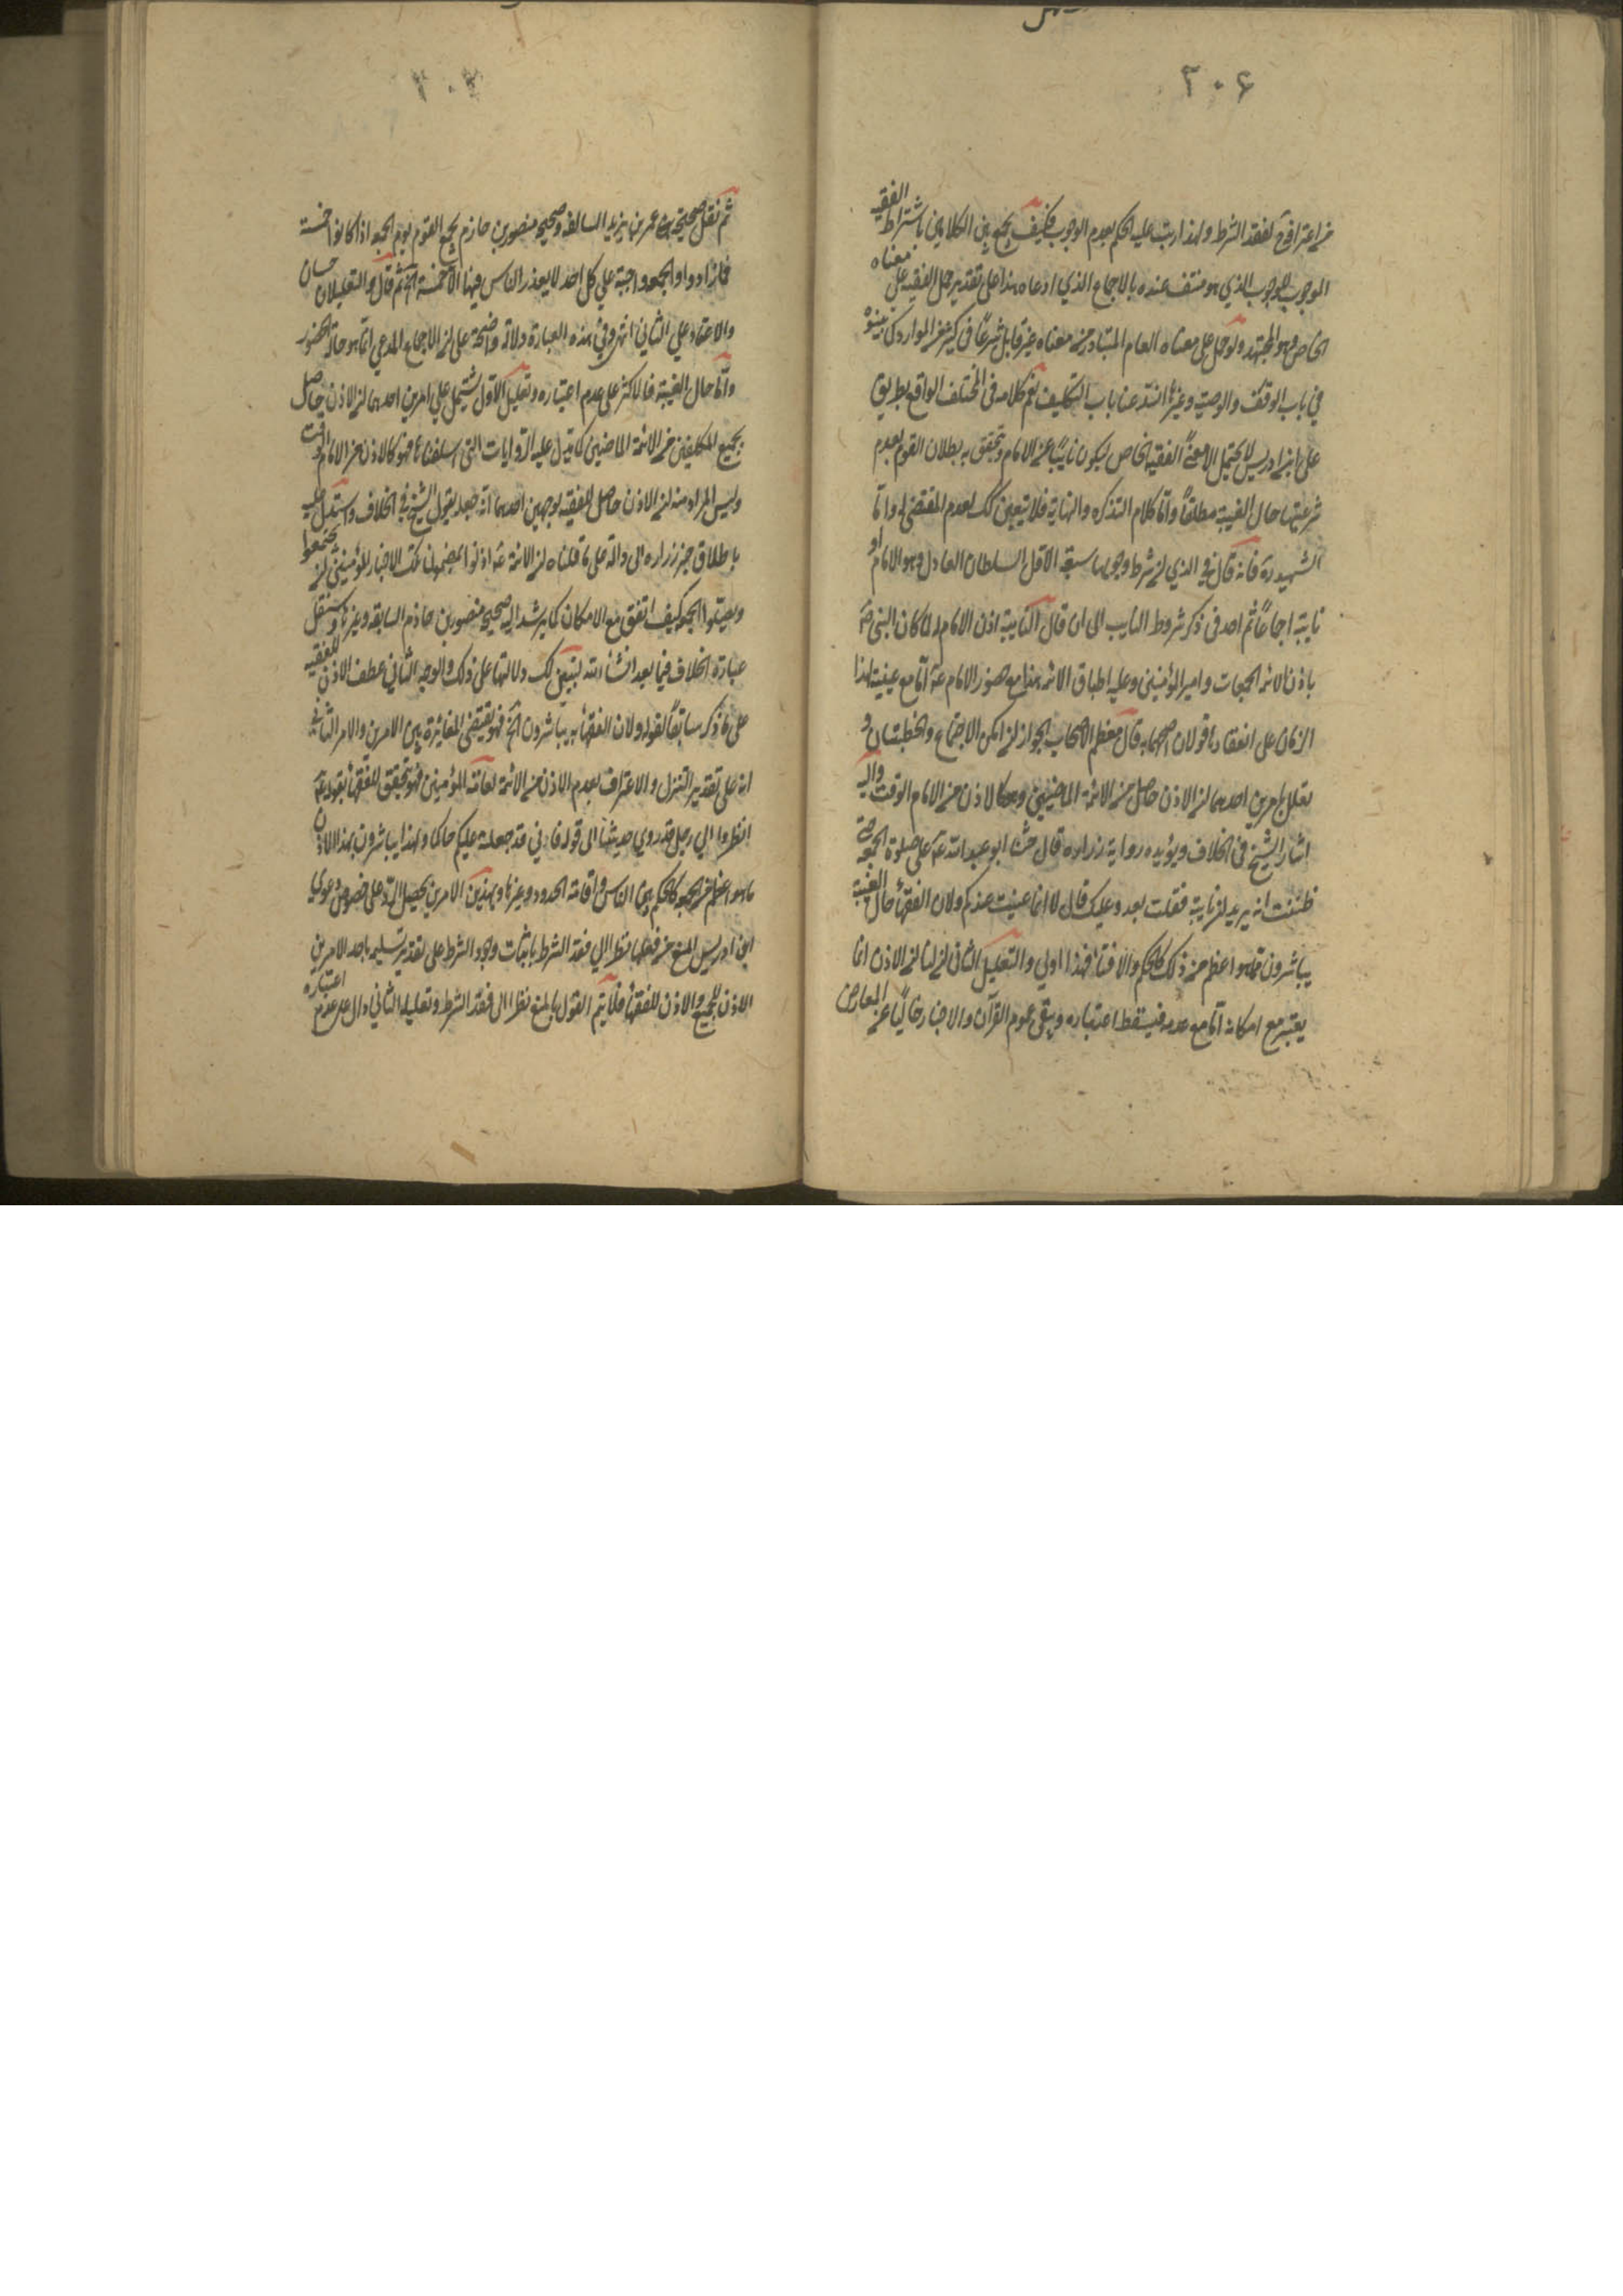 ٢٠٦
من اعترافه بفقد الشرط ولهذا رتب عليه الحكم بعدم الوجوب فكيف يجمع بين الكلامين باشتراط الفقيه
الموجب للوجوب الذي هو منتف عنده بالاجماع الذي ادعاه هذا على تقدير حمل الفقيه على معناه
الخاص وهو المجتهد ولو حمل على معناه العام المتبادر من معناه غير قابل شرعا في كثير من الموارد كما بينوه
في باب الوقف والوصية وغيرها انسد عنا باب التكليف نعم كلامه في المختلف الواقع بطريق
على ابن ادريس لا يحتمل الا معنى الفقيه الخاص ليكون نايبا عن الامام ويتحقق به بطلان القوم بعدم
شرعيتها حال الغيبة مطلقا واما كلام التذكرة والنهاية فلا يتعين لك لعدم المقتضي له واما
الشهيد ره فانه قال في الذي ان شرط وجوبها سبعة الاول السلطان العادل وهو الامام او
نايبه اجماعا ثم اخذ في ذكر شروط النايب الى ان قال التاسع اذن الامام له كما كان النبي ص
ياذن لائمة الجمعات وامير المؤمنين وعليه اطباق الائمة هذا مع حضور الامام ع اما مع غيبته كهذا
الزمان على انعقادها قولان اصحهما وبه قال معظم الاصحاب الجواز اذا امكن الاجتماع والخطبتان و
يعلل بامرين احدهما ان الاذن حاصل من الائمة الماضين وهو كالاذن من الامام الوقت واليه
اشار الشيخ في الخلاف ويؤيده رواية زرارة قال حثنا ابو عبد الله ع على صلوة الجمعة حتى
ظننت انه يريد ان نايته فقلت نغدو عليك قال لا انما عنيت عندكم ولان الفقهاء حال الغيبة
يباشرون ما هو اعظم من ذلك كالحكم والافتاء فهذا اولى والتعليل الثاني ان الاذن انما
يعتبر مع امكانه اما مع عدمه فيسقط اعتباره ويبقى عموم القرآن والاخبار خاليا عن المعارض
٢٠٧
ثم نقل صحيحة عمر بن يزيد السالفة وصحيحة منصور بن حازم يجمع القوم يوم الجمعة اذا كانوا خمسة
فما زادوا والجمعة واجبة على كل احد لا يعذر الناس فيها الا خمسة الخ ثم قال والتعليلان حسنان
والاعتماد على الثاني انتهى وفي هذه العبارة دلالة واضحة على ان الاجماع المدعي انما هو حالة الحضور
واما حال الغيبة فالاكثر على عدم اعتباره وتعليله الاول يشتمل على امرين احدهما ان الاذن حاصل
لجميع المكلفين من الائمة الماضين كما تدل عليه الروايات التي اسلفناها فهو كالاذن من الامام الوقت
وليس المراد منه ان الاذن حاصل للفقيه لوجهين احدهما انه جعله يقول الشيخ في الخلاف واستدل عليه
باطلاق خبر زرارة الدالة على ما قلناه ان الائمة ع اذنوا بمضمون تلك الاخبار للمؤمنين ان يجتمعوا
ويصلوا الجمعة كيف اتفق مع الامكان كما يرشد اليه صحيح منصور بن حازم السابقة وغيرها وسننقل
عبارة الخلاف فيما بعد انشاء الله ليتبين لك دلالتها على ذلك والوجه الثاني عطف الاذن للفقيه
على ما ذكر سابقا لقوله ولان الفقهاء يباشرون الخ فهو يقتضي المغايرة بين الامرين والامر الثاني
انه على تقدير التنزل والاعتراف بعدم الاذن من الائمة لعامة المؤمنين فهو متحقق للفقهاء بقوله ع
انظروا الى رجل قد روى حديثنا الى قوله فاني قد جعلته عليكم حاكما ولهذا يباشرون بهذا الاذن
ما هو اعظم من الجمعة كالحكم بين الناس واقامة الحدود وغيرها وبهذين الامرين يحصل الرد على خصوص دعوى
ابن ادريس المنع من فعلها نظرا الى فقد الشرط باثبات وجود الشرط على تقدير تسليمه باحد الامرين
الاذن للجميع والاذن للفقهاء فلا يتم القول بالمنع نظرا الى فقد الشرط وتعليله الثاني دال على عدم اعتباره